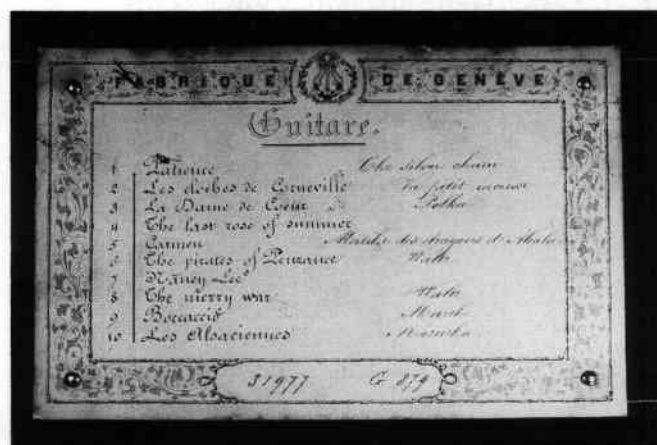 FABRIQUE DE GENÈVE
Guitare.
1 Patience The silver churn
2 Les cloches de Corneville Va petit mousse
3 La Dame de Coeur Polka
4 The last rose of summer
5 Carmen des dragons d'Alcala
6 The pirates of Penzance Waltz
7 Nancy Lee
8 The merry war Waltz
9 Boccaccio March
10 Les Alsaciennes Mazurka
31977 G 879